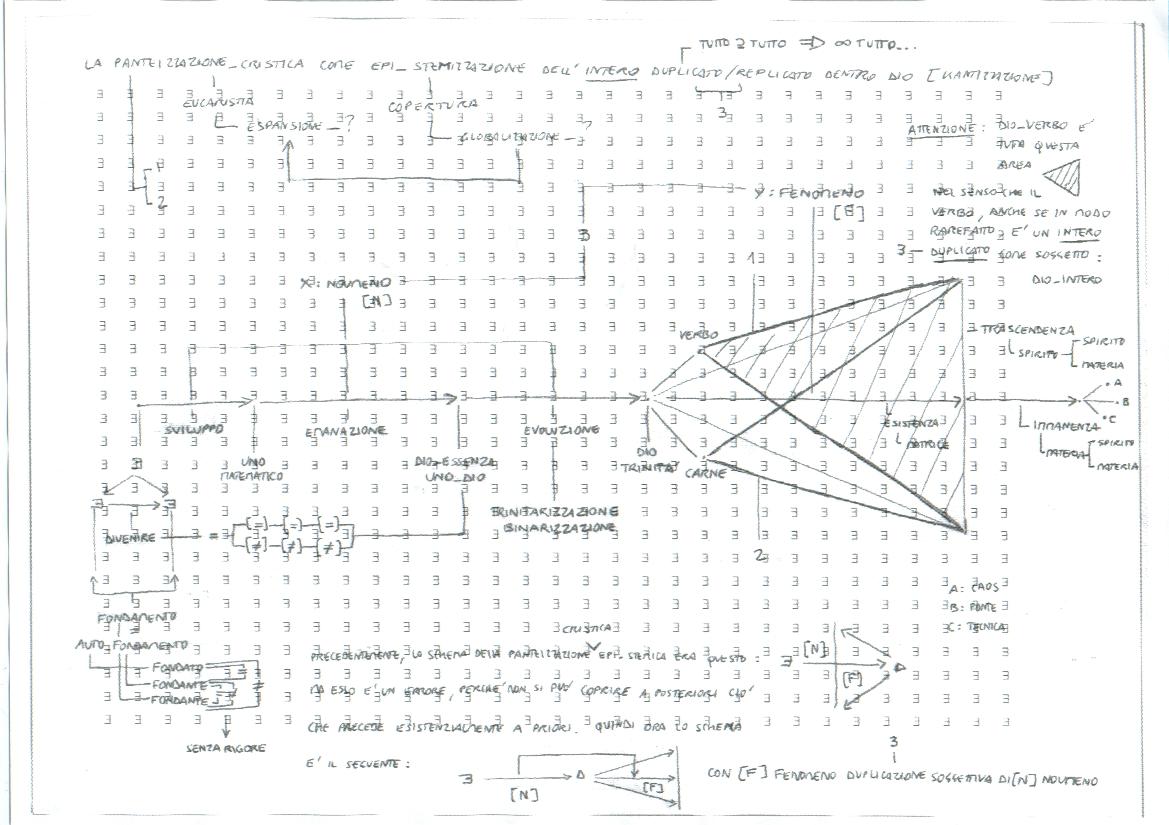 TUTTO ∃ TUTTO => ∞ TUTTO...
LA PANTEIZZAZIONE_CRISTICA COME EPI_STEMIZZAZIONE DELL'INTERO DUPLICATO/REPLICATO DENTRO DIO [KANTIZZAZIONE]
EUCARISTIA
COPERTURA
3
ESPANSIONE — ?
GLOBALIZZAZIONE — ?
ATTENZIONE: DIO_VERBO E'
TUTTA QUESTA
AREA
1
2
NEL SENSO CHE IL
VERBO, ANCHE SE IN MODO
RAREFATTO, E' UN INTERO
3 — DUPLICATO COME SOGGETTO:
DIO_INTERO
Y: FENOMENO
[F]
3
X: NOUMENO
[N]
1
VERBO
TRASCENDENZA
SPIRITO
SPIRITO
MATERIA
A
B
C
SVILUPPO
EMANAZIONE
EVOLUZIONE
ESISTENZA
MATRICE
IMMANENZA
MATERIA
SPIRITO
MATERIA
∃
UNO
MATEMATICO
DIO_ESSENZA
UNO_DIO
DIO
TRINITA'
CARNE
∃ ∃
TRINITARIZZAZIONE
BINARIZZAZIONE
DIVENIRE = [=] [=] [=]
[≠] [≠] [≠]
2
FONDAMENTO
=
AUTO_FONDAMENTO
FONDATO
FONDANTE
FONDANTE
= ≠
SENZA RIGORE
A: CAOS
B: PONTE
C: TECNICA
CRISTICA
PRECEDENTEMENTE, LO SCHEMA DELLA PANTEIZZAZIONE EPI_STEMICA ERA QUESTO: ∃ [N] [F] D
MA ESSO E' UN ERRORE, PERCHE' NON SI PUO' COPRIRE A POSTERIORI CIO'
CHE PRECEDE ESISTENZIALMENTE A PRIORI. QUINDI ORA LO SCHEMA
E' IL SEGUENTE: ∃ [N] D [F]
3
CON [F] FENOMENO DUPLICAZIONE SOGGETTIVA DI [N] NOUMENO